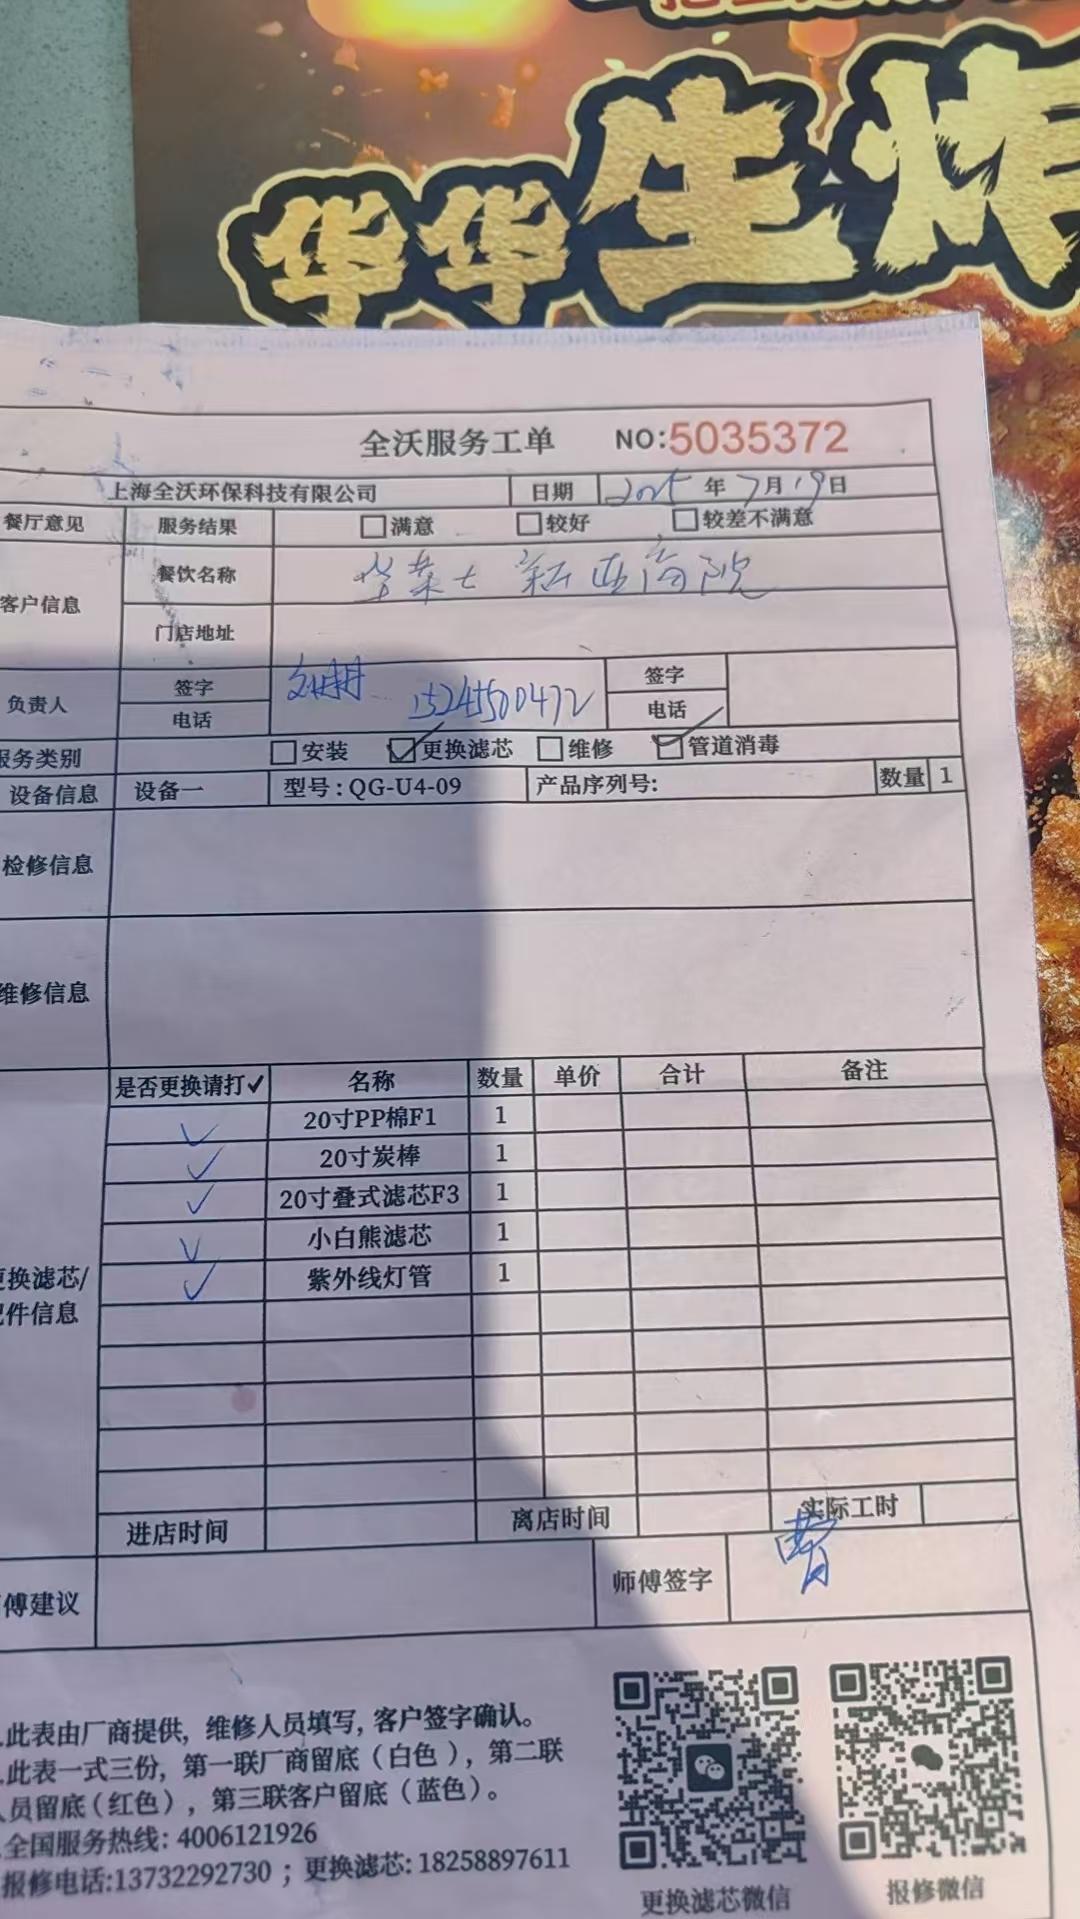 华华生炸
全沃服务工单 NO:5035372
上海全沃环保科技有限公司 日期 2025年7月19日
餐厅意见 服务结果 □满意 □较好 □较差不满意
客户信息 餐饮名称 华莱士新亚商院
门店地址
负责人 签字 15245500472 签字
电话 电话
服务类别 □安装 ☑更换滤芯 □维修 ☑管道消毒
设备信息 设备一 型号:QG-U4-09 产品序列号: 数量 1
检修信息
维修信息
是否更换请打✓ 名称 数量 单价 合计 备注
✓ 20寸PP棉F1 1
✓ 20寸炭棒 1
✓ 20寸叠式滤芯F3 1
✓ 小白熊滤芯 1
✓ 紫外线灯管 1
更换滤芯/
配件信息
进店时间 离店时间 实际工时
傅建议 师傅签字 曹
.此表由厂商提供, 维修人员填写, 客户签字确认。
.此表一式三份, 第一联厂商留底(白色), 第二联
人员留底(红色), 第三联客户留底(蓝色)。
.全国服务热线: 4006121926
报修电话:13732292730 ; 更换滤芯: 18258897611
更换滤芯微信 报修微信